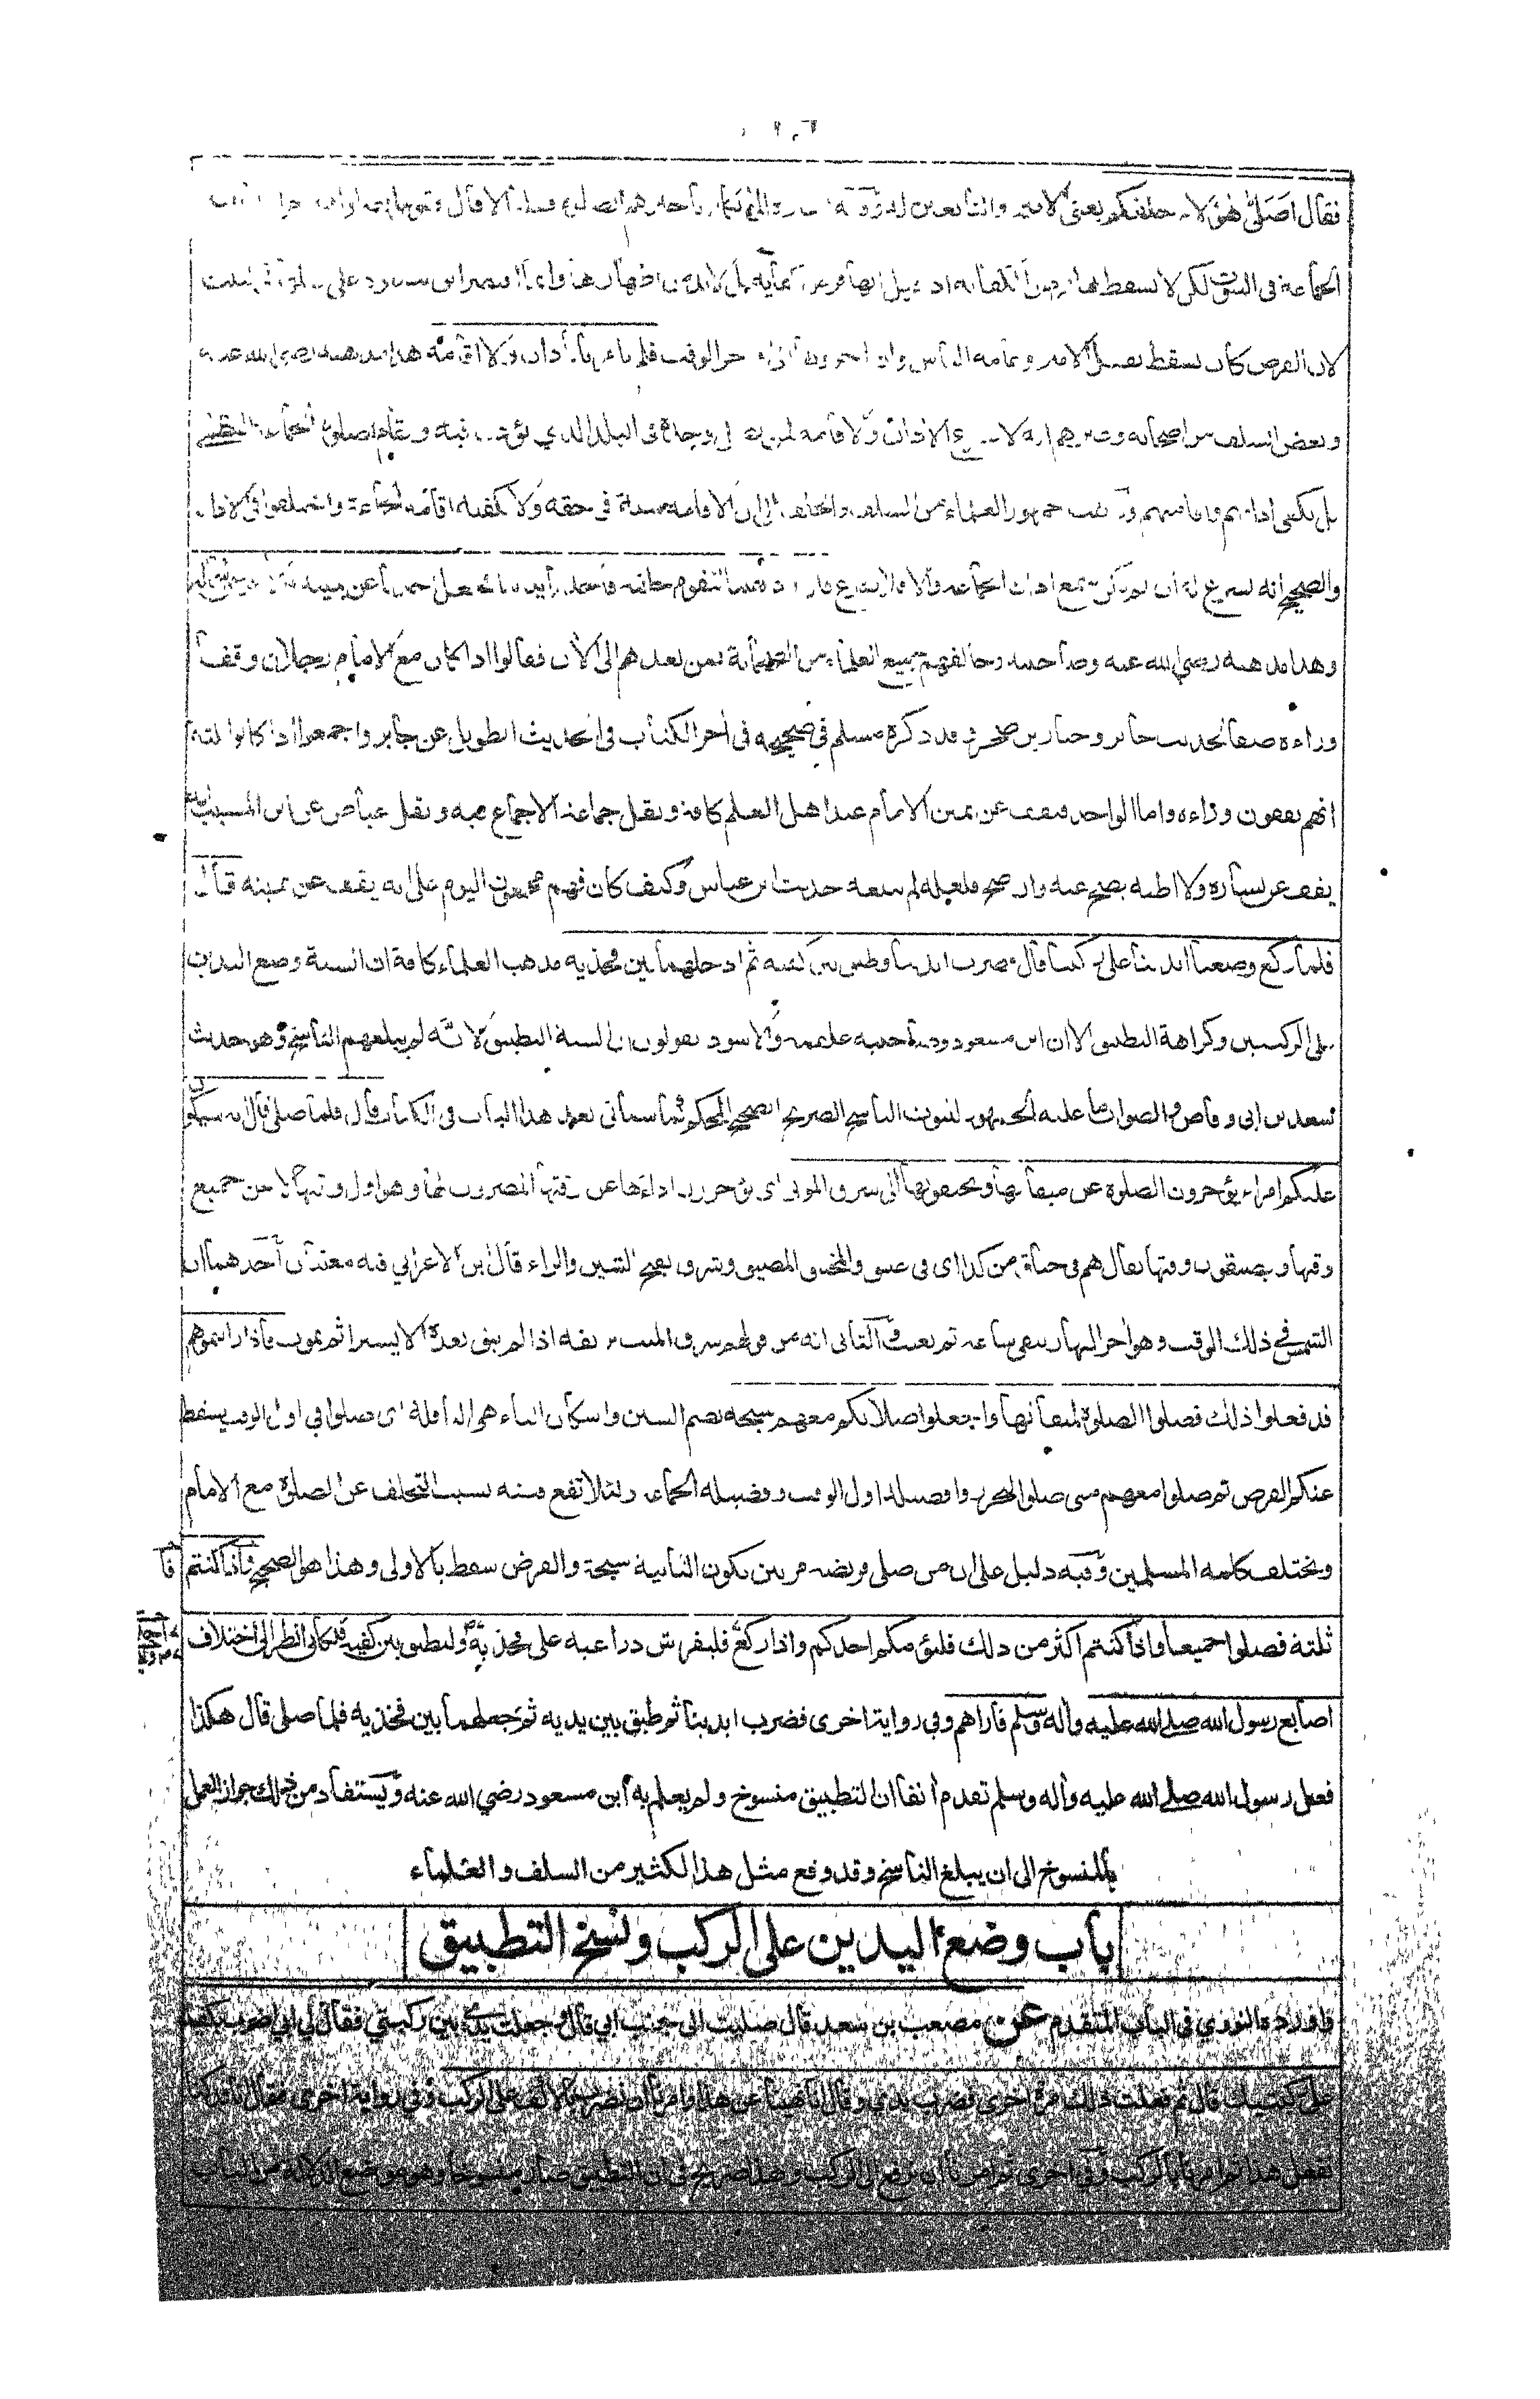 فقال اصلى هؤلاء خلفكم يعني الامير والتابعين له
الجماعة في البيوت لكن لا يسقط بها
لان الفرض كان يسقط بفعل الامير وعامة الناس وان اخروها الى اخر الوقت فلم يامرنا باذان ولا اقامة هذا مذهبه رضي الله عنه
وبعض السلف من اصحابه وغيرهم انه لا يشرع الاذان ولا اقامة لمن يصلي وحده في البلد الذي يؤذن فيه ويقام لصلوة الجماعة العظمى
بل يكفي اذانهم واقامتهم وذهب جمهور العلماء من السلف والخلف الى ان الاقامة سنة في حقه ولا يكفيه اقامة الجماعة واختلفوا في الاذان
والصحيح انه يشرع له ان لم يكن سمع اذان الجماعة والا فلا يشرع قال وذهبنا لنقوم خلفه فاخذ بايدينا فجعل احدنا عن يمينه
وهذا مذهبه رضي الله عنه وصاحبيه وخالفهم جميع العلماء من الصحابة فمن بعدهم الى الآن فقالوا اذا كان مع الامام رجلان وقفا
وراءه صفا لحديث جابر وجبار بن صخر قد ذكره مسلم في صحيحه في آخر الكتاب في الحديث الطويل عن جابر واجمعوا اذا كانوا ثلثة
انهم يقفون وراءه واما الواحد فيقف عن يمين الامام عند اهل العلم كافة ونقل جماعة الاجماع فيه ونقل عياض عن ابن المسيب انه
يقف عن يساره ولا اظنه يصح عنه وان صح فلعله لم يبلغه حديث ابن عباس وكيف كان فهم مجمعون اليوم على انه يقف عن يمينه قال
فلما ركع وضعنا ايدينا على ركبنا قال فضرب ايدينا وطبق بين كفيه ثم ادخلهما بين فخذيه مذهب العلماء كافة ان السنة وضع اليدين
على الركبتين وكراهة التطبيق الا ان ابن مسعود وصاحبيه علقمة والاسود يقولون ان السنة التطبيق لانه لم يبلغهم الناسخ وهو حديث
سعد بن ابي وقاص والصواب ما عليه الجمهور لثبوت الناسخ الصريح الصحيح المحكم كما سيأتي بعد هذا الباب في الكتاب قال فلما صلى قال انه سيكون
عليكم امراء يؤخرون الصلوة عن ميقاتها ويخنقونها الى شرق الموتى اي يؤخرون اداءها عن وقتها المضروب لها وهو اول وقتها لا عن جميع
وقتها ويضيقون وقتها يقال هم في خناق من كذا اي في عسق والمختنق المضيق وشرق بفتح الشين والراء قال ابن الاعرابي فيه معنيان احدهما ان
الشمس في ذلك الوقت وهو آخر النهار تبقى ساعة ثم تغيب والثاني انه من قولهم شرق الميت بريقه اذا لم يبق بعده الا يسيرا ثم يموت فاذا رأيتموهم
قد فعلوا ذلك فصلوا الصلوة لميقاتها واجعلوا صلاتكم معهم سبحة بضم السين واسكان الباء هي النافلة اي صلوا في اول الوقت يسقط
عنكم الفرض ثم صلوا معهم متى صلوا لتحرزوا فضيلة اول الوقت وفضيلة الجماعة ولئلا تقع فتنة بسبب التخلف عن الصلوة مع الامام
وتختلف كلمة المسلمين وفيه دليل على ان من صلى فريضة مرتين تكون الثانية سبحة والفرض سقط بالاولى وهذا هو الصحيح فاذا كنتم
ثلثة فصلوا جميعا واذا كنتم اكثر من ذلك فليؤمكم احدكم واذا ركع فليفرش ذراعيه على فخذيه وليطبق بين كفيه فلكأني انظر الى اختلاف
اصابع رسول الله صلى الله عليه وآله وسلم فأراهم وفي رواية اخرى فضرب ايدينا ثم طبق بين يديه ثم جعلهما بين فخذيه فلما صلى قال هكذا
فعل رسول الله صلى الله عليه وآله وسلم تقدم آنفا ان التطبيق منسوخ ولم يعلم به ابن مسعود رضي الله عنه ويستفاد من ذلك جواز العمل
بالمنسوخ الى ان يبلغ الناسخ وقد وقع مثل هذا لكثير من السلف والعلماء
باب وضع اليدين على الركب ونسخ التطبيق
واورده النووي في الباب المتقدم عن مصعب بن سعد قال صليت الى جنب ابي قال وجعلت يدي بين ركبتي فقال لي ابي اضرب بكفيك
على ركبتيك قال ثم فعلت ذلك مرة اخرى فضرب يدي وقال انا نهينا عن هذا وامرنا ان نضرب بالاكف على الركب وفي رواية اخرى فقال قد كنا
نفعل هذا ثم امرنا بالركب وفي اخرى ثم امرنا ان نرفع الى الركب وهذا صريح في ان التطبيق صار منسوخا وهو موضع الدلالة من الباب